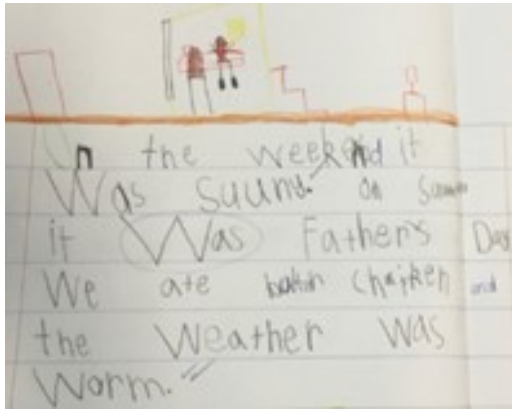 On the weekend it
Was Suund. on
it Was Father's Day
We ate chaiken and
the Weather Was
Worm.